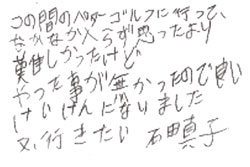 この間のパターゴルフに行って、
なかなか入らず思ったより
難しかったけど
やった事が無かったので良い
けいけんになりました
又、行きたい 石田真子